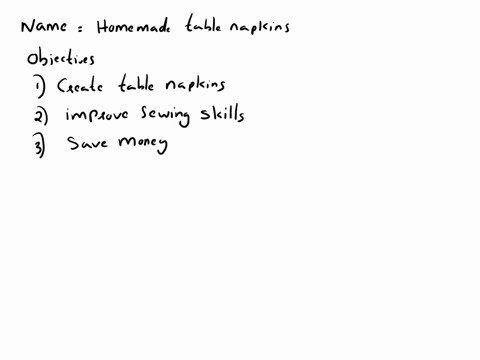 Name : Homemade table napkins
Objectives
1) Create table napkins
2) improve sewing skills
3) Save money